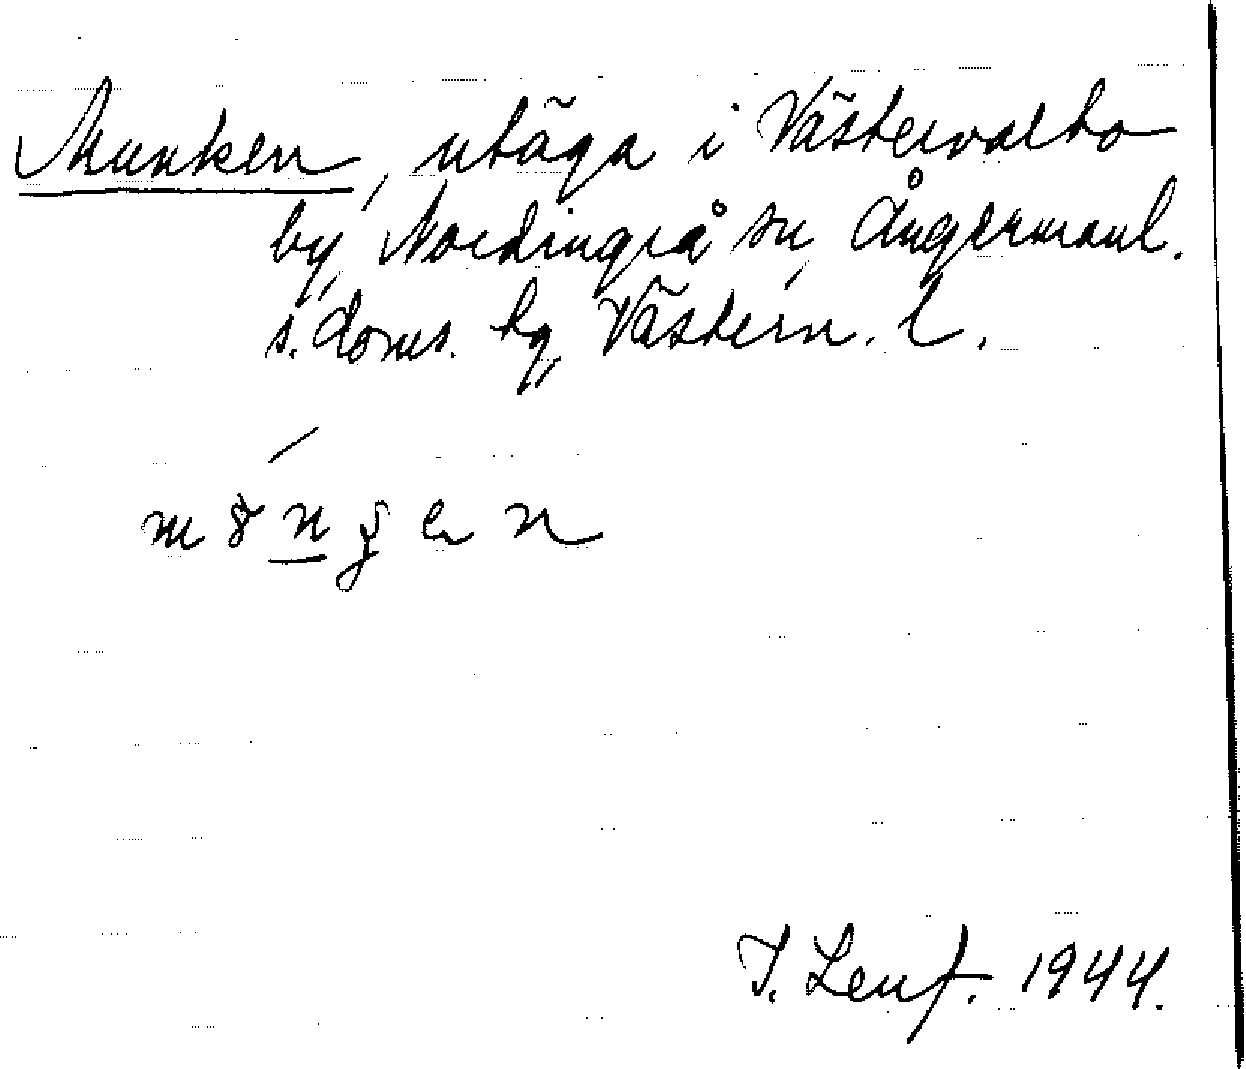 Munken, utäga i Västervalto
by, Nordingrå sn, Ångermanl.
s. doms. hg, Västern. l.
T. Lenf. 1944.